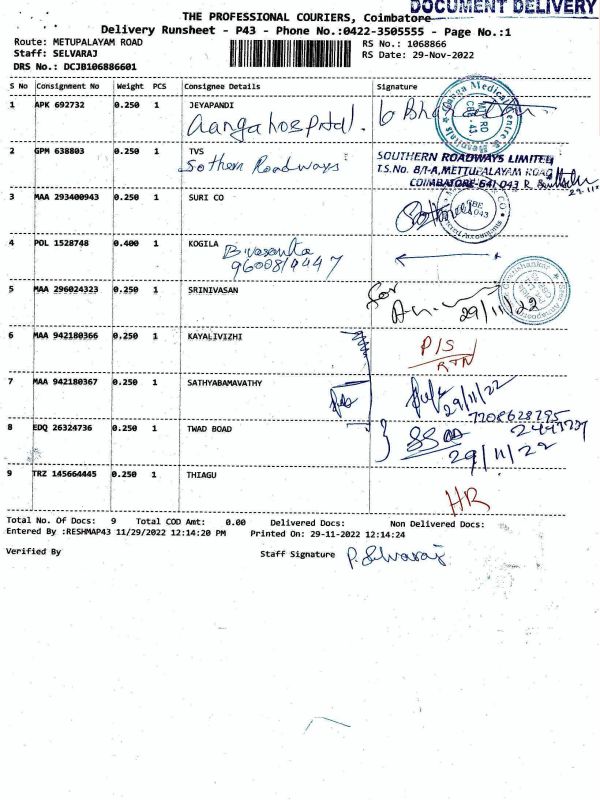 DOCUMENT DELIVERY
THE PROFESSIONAL COURIERS, Coimbatore
Delivery Runsheet - P43 - Phone No.:0422-3505555 - Page No.:1
Route: METUPALAYAM ROAD
Staff: SELVARAJ
DRS No.: DCJB106886601
RS No.: 1068866
RS Date: 29-Nov-2022
S No Consignment No Weight PCS Consignee Details Signature
1 APK 692732 0.250 1 JEYAPANDI
Ganga hospital.
2 GPM 638803 0.250 1 TVS
Sothern Roadways
SOUTHERN ROADWAYS LIMITED
T.S.No. 8/1-A, METTUPALAYAM ROAD
COIMBATORE-641 043
3 MAA 293400943 0.250 1 SURI CO
4 POL 1528748 0.400 1 KOGILA
5 MAA 296024323 0.250 1 SRINIVASAN
for
29/11/22
6 MAA 942180366 0.250 1 KAYALIVIZHI
P/S
RTN
7 MAA 942180367 0.250 1 SATHYABAMAVATHY
29/11/22
7708628795
8 EDQ 26324736 0.250 1 TWAD BOAD
29/11/22
9 TRZ 145664445 0.250 1 THIAGU
HR
Total No. Of Docs: 9 Total COD Amt: 0.00 Delivered Docs: Non Delivered Docs:
Entered By :RESHMAP43 11/29/2022 12:14:20 PM Printed On: 29-11-2022 12:14:24
Verified By Staff Signature P. Selvaraj